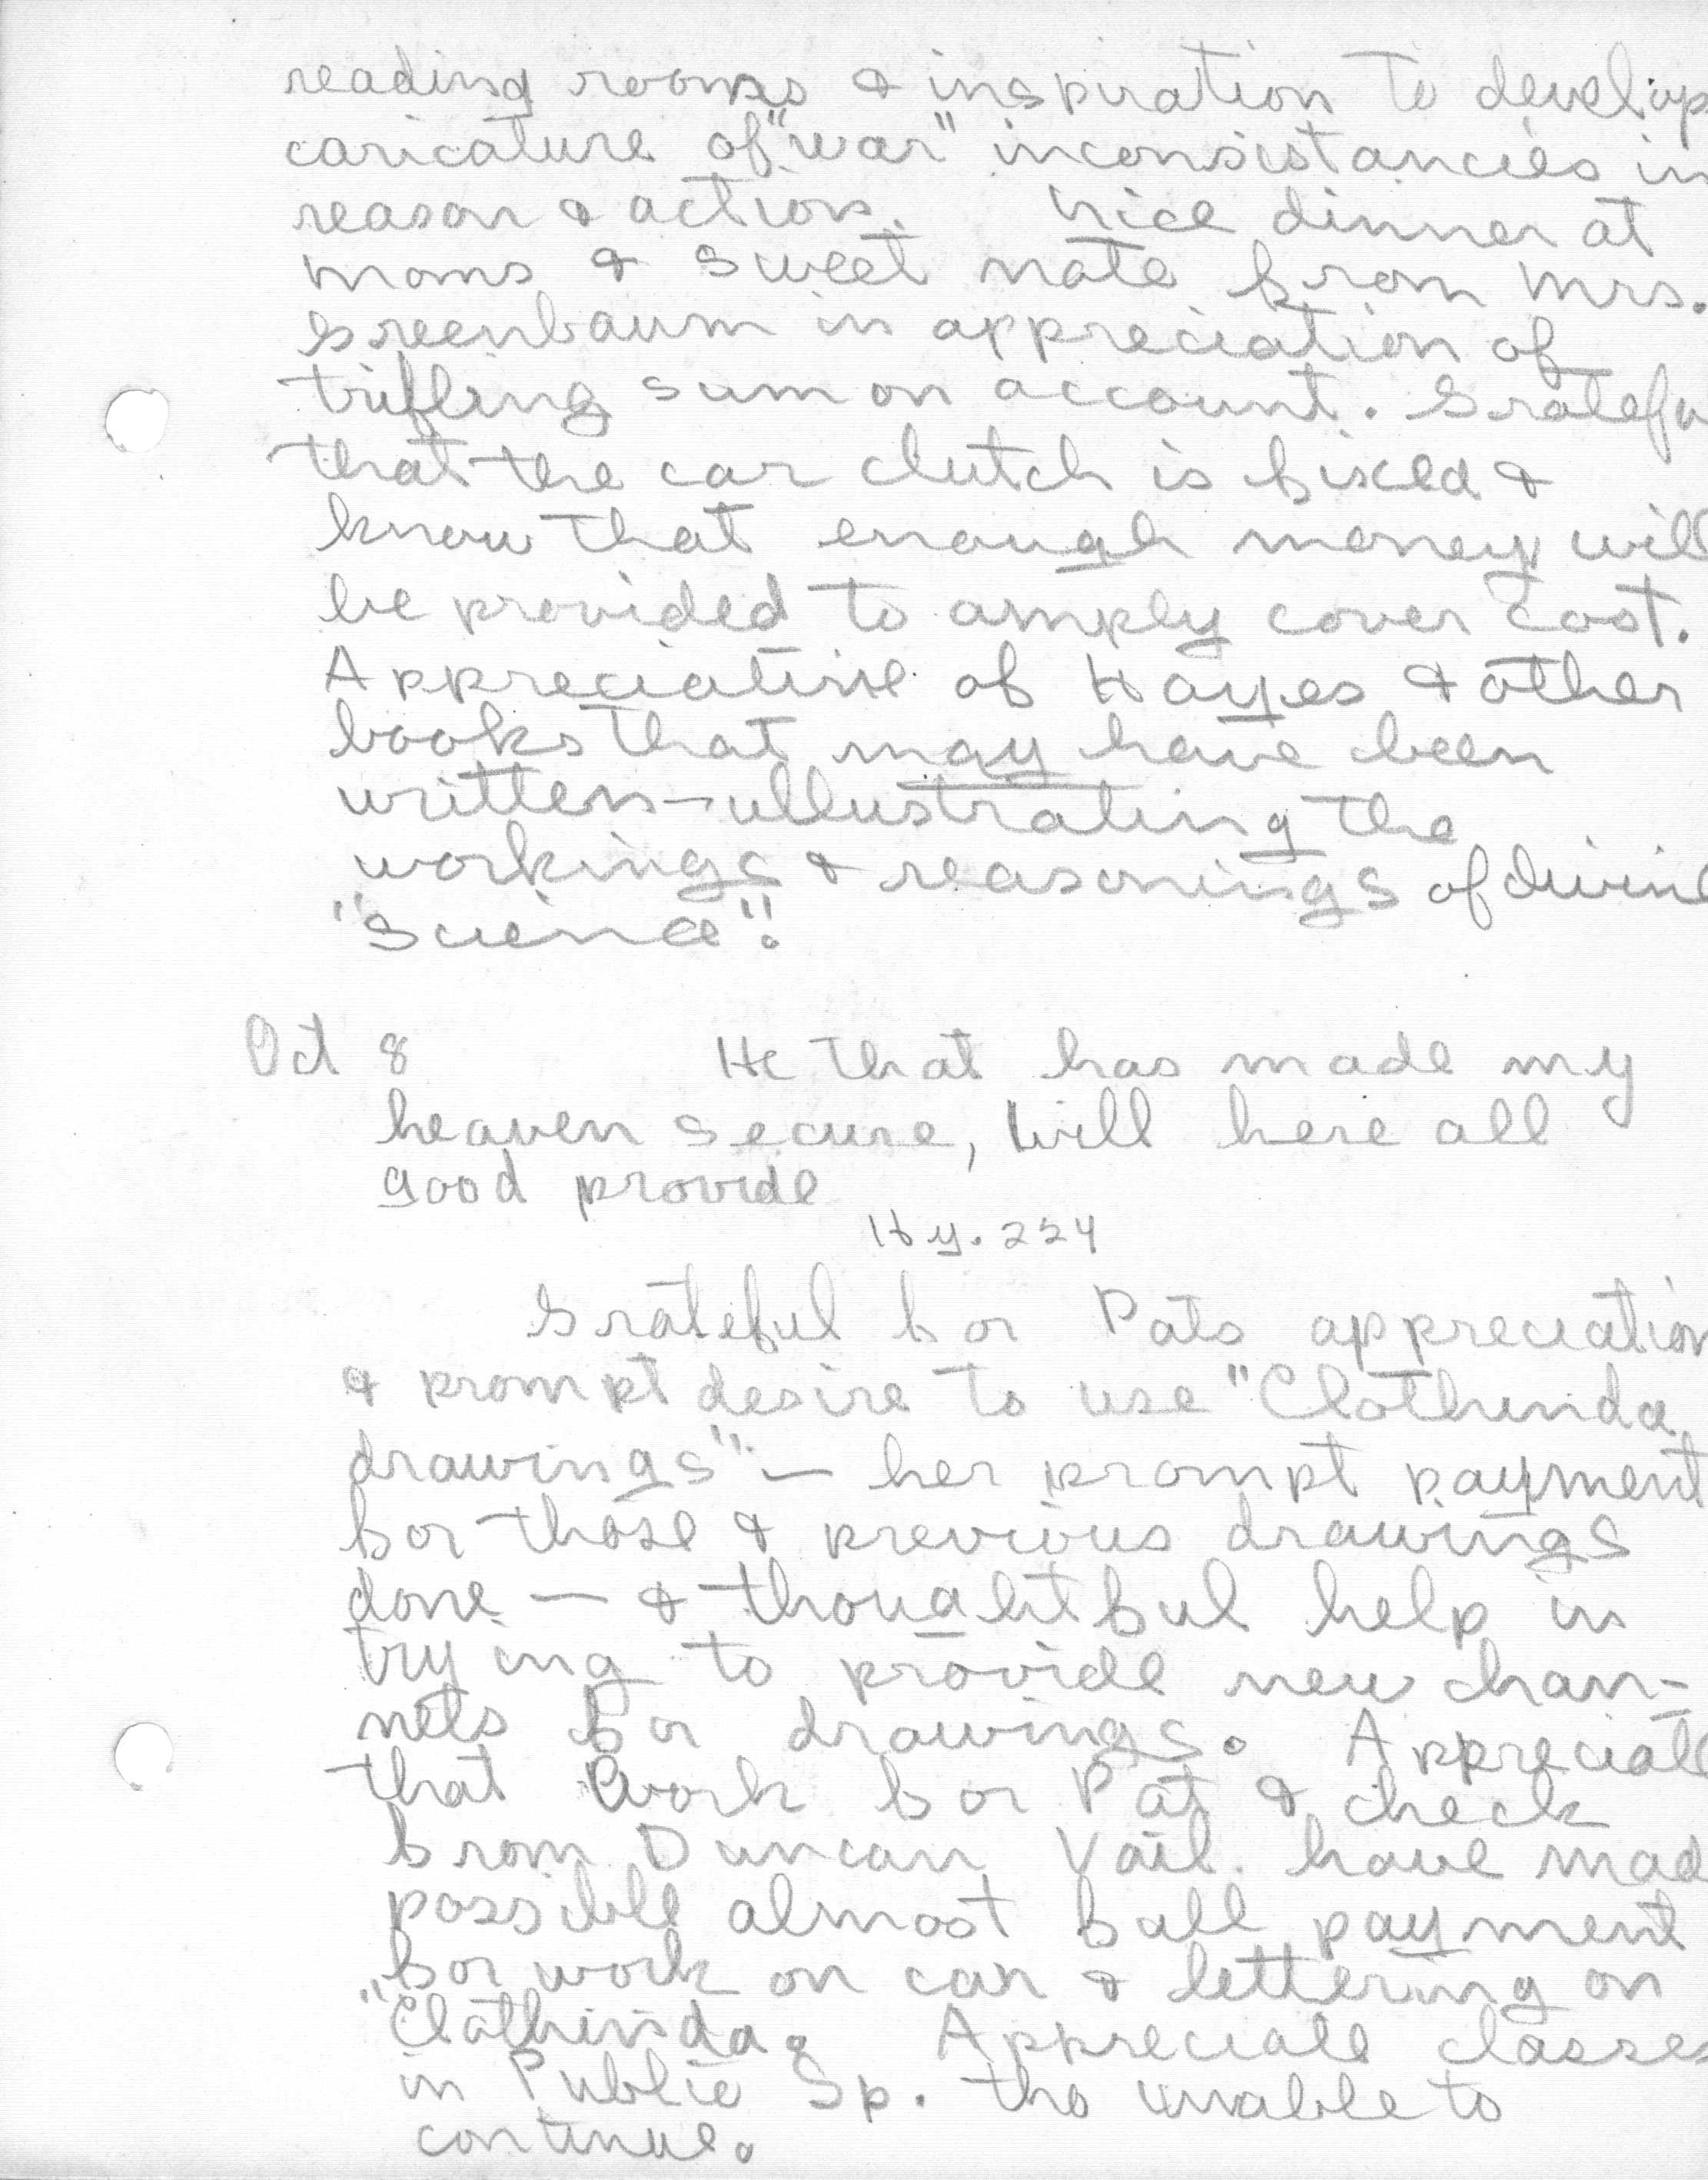 reading rooms & inspiration to develop
caricature of "war" inconsistancies in
reason & action. Nice dinner at
moms & sweet note from Mrs.
Greenbaum in appreciation of
trifling sum on account. Gratefu
that the car clutch is fixed &
know that enough money will
be provided to amply cover cost.
Appreciative of Hayes & other
books that may have been
written—illustrating the
workings & reasonings of divine
"Science".
Oct 8 He that has made my
heaven secure, Will here all
good provide
Hy. 224
Grateful for Pats appreciation
& prompt desire to use "Clothinda
drawings" — her prompt payment
for those & previous drawings
done — & thoughtful help in
trying to provide new chan-
nels for drawings. Appreciate
that work for Pat & check
from Duncan Vail. have mad
possible almost full payment
for work on car & lettering on
"Clothinda. Appreciate classes
in Public Sp. tho unable to
continue.